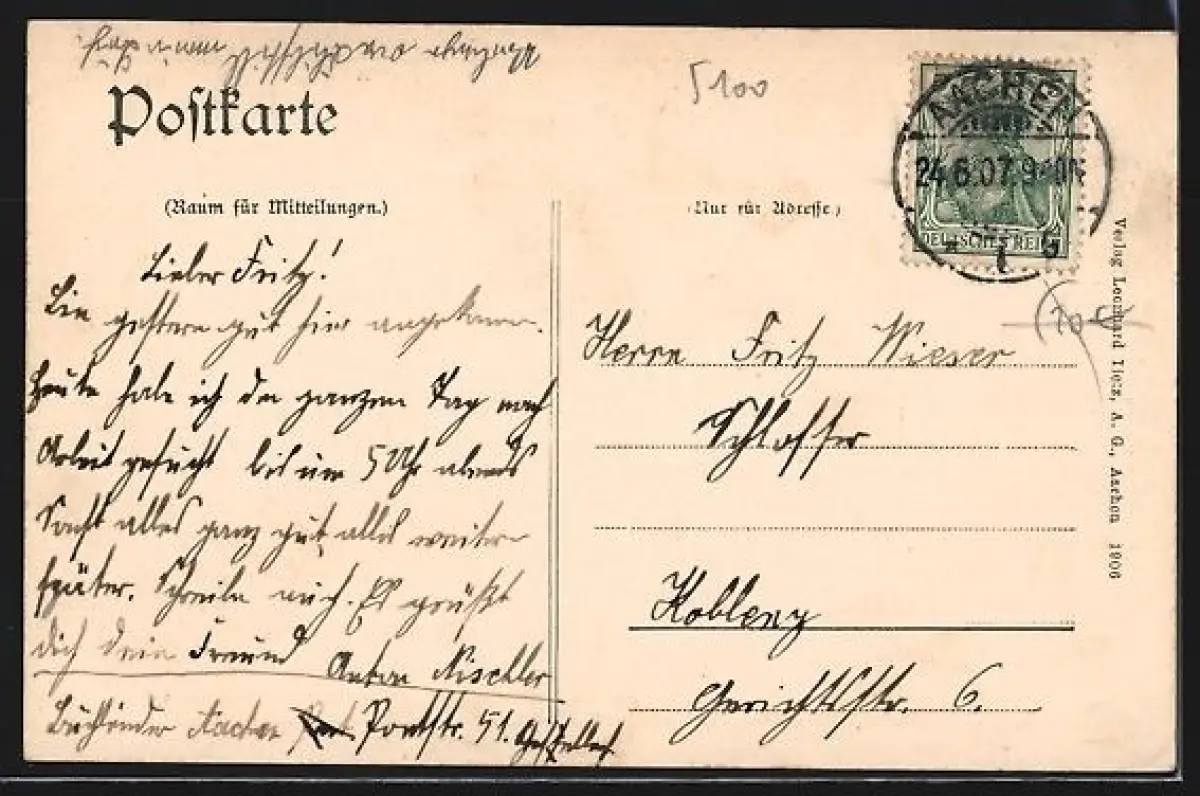 Postkarte
5100
AACHEN
24.6.07.9-10N
DEUTSCHES REICH
(Raum für Mitteilungen.)
(Nur für Adresse)
Lieber Fritz!
Bin gestern gut hier angekomm.
Heute habe ich den ganzen Tag nach
Arbeit gesucht bis um 5 Uhr abends
Sonst alles ganz gut, alles weitere
später. Schreibe mich. Es grüßt
dich dein Freund Anton Nischler
Buchbinder Aachen Pontstr. 51.
Herrn Fritz Wieser
Schlosser
Koblenz
Gerichtsstr. 6.
Verlag Leonhard Tietz, A. G., Aachen 1906